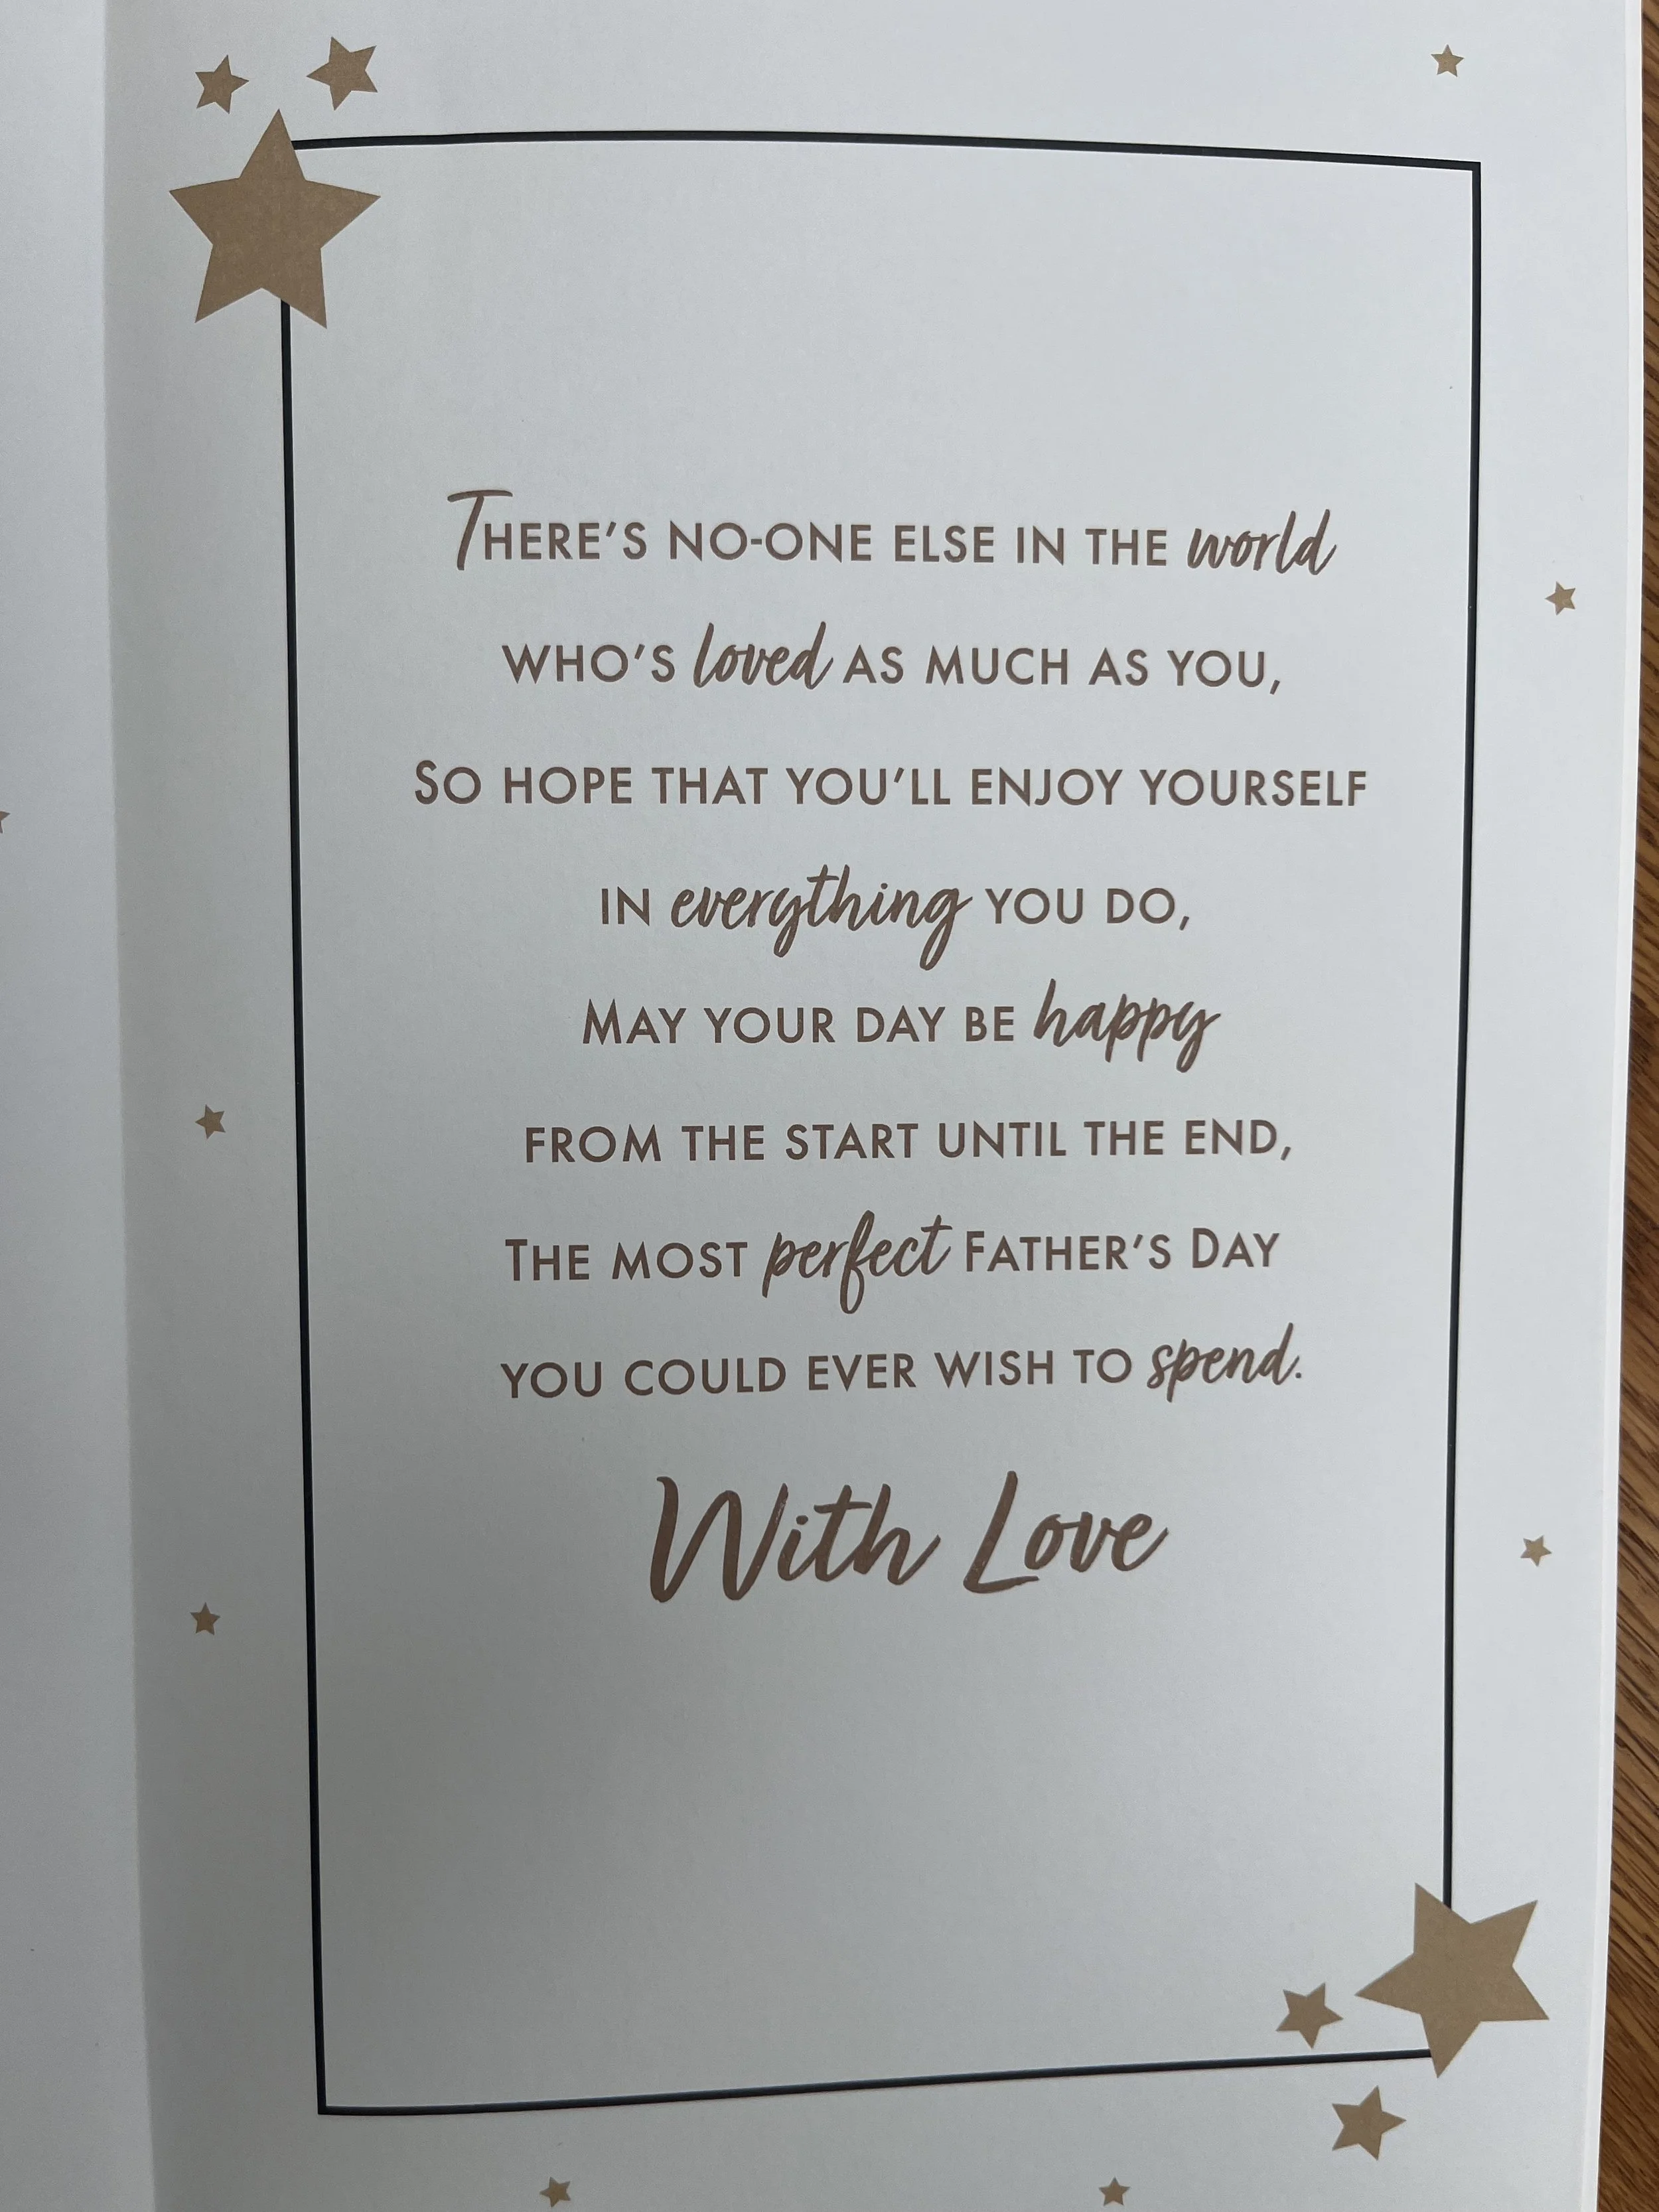 THERE'S NO-ONE ELSE IN THE world
WHO'S loved AS MUCH AS YOU,
SO HOPE THAT YOU'LL ENJOY YOURSELF
IN everything YOU DO,
MAY YOUR DAY BE happy
FROM THE START UNTIL THE END,
THE MOST perfect FATHER'S DAY
YOU COULD EVER WISH TO spend.
With Love